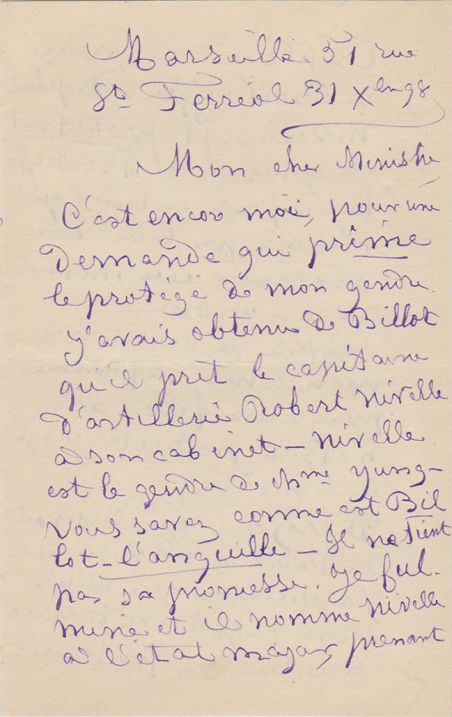 Marseille 51 rue
St Ferréol 31 Xbre 98
Mon cher Ministre,
C'est encor moi, pour une
demande qui prime
le protégé de mon gendre.
J'avais obtenu de Billot
qu'il prît le capitaine
d'artillerie Robert Nivelle
à son cabinet – Nivelle
est le gendre de Mme Yung –
vous savez comme est Bil
lot – l'anguille – Il ne tient
pas sa promesse. Je ful-
mine et il nomme Nivelle
à l'état major, prenant